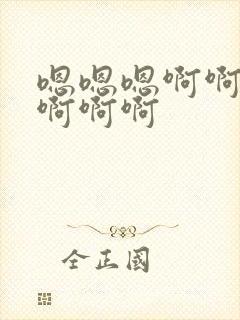 嗯嗯嗯啊啊
啊啊啊
全正國